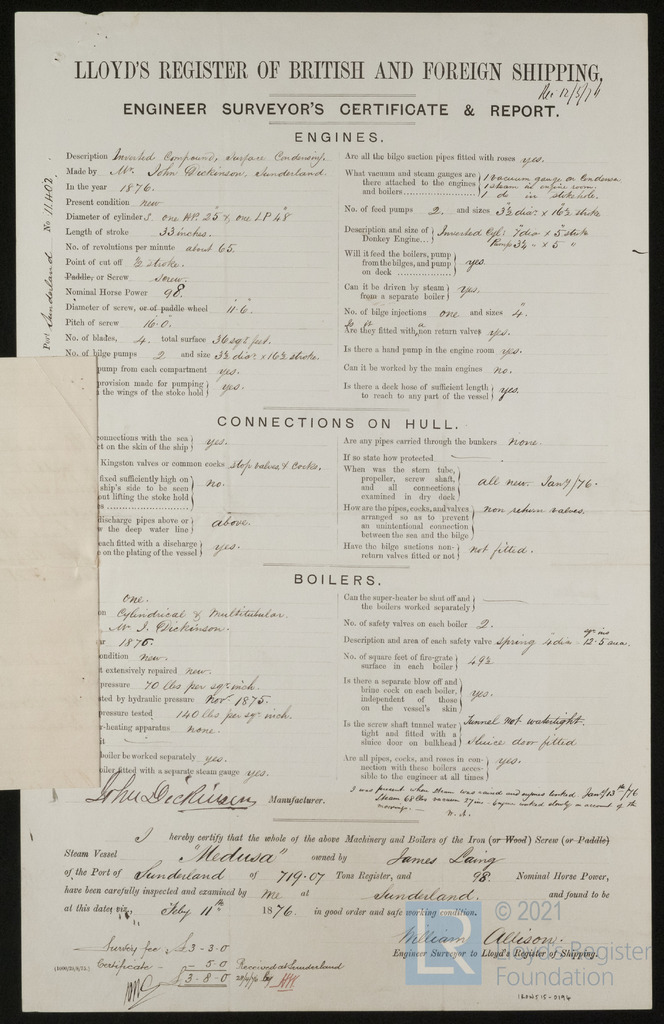 LLOYD'S REGISTER OF BRITISH AND FOREIGN SHIPPING,
Rec 12/5/76
ENGINEER SURVEYOR'S CERTIFICATE & REPORT.
Port Sunderland No 11402.
ENGINES.
Description Inverted Compound, Surface Condensing.
Made by Mr. John Dickinson, Sunderland.
In the year 1876.
Present condition new
Diameter of cylinders. one HP. 25 &, one LP 48
Length of stroke 33 inches.
No. of revolutions per minute about 65.
Point of cut off ½ stroke.
Paddle, or Screw Screw.
Nominal Horse Power 98.
Diameter of screw, or of paddle wheel 11.6.
Pitch of screw 16.0.
No. of blades, 4. total surface 36 sqr feet.
No. of bilge pumps 2 and size 3½ diar. x 16½ stroke.
pump from each compartment yes.
provision made for pumping
the wings of the stoke hold yes.
Are all the bilge suction pipes fitted with roses yes.
What vacuum and steam gauges are
there attached to the engines
and boilers
1 vacuum gauge on Condenser
1 steam in engine room.
1 do in stokehole.
No. of feed pumps 2. and sizes 3½ diar. x 16½ stroke
Description and size of
Donkey Engine
Inverted Cyl: 7 dia x 5 stroke
Pump 3¼ " x 5 "
Will it feed the boilers, pump
from the bilges, and pump
on deck yes.
Can it be driven by steam
from a separate boiler yes.
No. of bilge injections one and sizes 4.
Are they fitted with a non return valve yes.
Is there a hand pump in the engine room yes.
Can it be worked by the main engines no.
Is there a deck hose of sufficient length
to reach to any part of the vessel yes.
CONNECTIONS ON HULL.
connections with the sea
ct on the skin of the ship yes.
Kingston valves or common cocks stop valves & Cocks.
fixed sufficiently high on
ship's side to be seen
out lifting the stoke hold
no.
discharge pipes above or
w the deep water line above.
each fitted with a discharge
e on the plating of the vessel yes.
Are any pipes carried through the bunkers none.
If so state how protected
When was the stern tube,
propeller, screw shaft,
and all connections
examined in dry dock
all new. Jany/76.
How are the pipes, cocks, and valves
arranged so as to prevent
an unintentional connection
between the sea and the bilge
non return valves.
Have the bilge suctions non-
return valves fitted or not not fitted.
BOILERS.
one.
on Cylindrical & Multitubular
Mr J. Dickinson.
ar 1876.
ondition new.
t extensively repaired new.
pressure 70 lbs per sqr inch.
sted by hydraulic pressure Novr 1875.
pressure tested 140 lbs per sqr inch.
r-heating apparatus none.
it
boiler be worked separately yes.
oiler fitted with a separate steam gauge yes.
Can the super-heater be shut off and
the boilers worked separately
No. of safety valves on each boiler 2.
Description and area of each safety valve spring 4 dia - 12.5 area. sqr ins
No. of square feet of fire-grate
surface in each boiler 49½
Is there a separate blow off and
brine cock on each boiler,
independent of those
on the vessel's skin
yes.
Is the screw shaft tunnel water
tight and fitted with a
sluice door on bulkhead
Tunnel not watertight.
Sluice door fitted
Are all pipes, cocks, and roses in con-
nection with these boilers acces-
sible to the engineer at all times
yes.
John Dickinson Manufacturer.
I was present when steam was raised and engines worked Jany 13th/76
Steam 68 lbs vacuum 27 ins. Engine worked slowly on account of the
moorings.
W. A.
I hereby certify that the whole of the above Machinery and Boilers of the Iron (or Wood) Screw (or Paddle)
Steam Vessel "Medusa" owned by James Laing
of the Port of Sunderland of 719.07 Tons Register, and 98. Nominal Horse Power,
have been carefully inspected and examined by me at Sunderland. and found to be
at this date, viz. Feby 11th 1876. in good order and safe working condition.
William Allison.
Engineer Surveyor to Lloyd's Register of Shipping.
Survey fee £3-3-0
Certificate - 5-0
£3-8-0
Received at Sunderland
(1000/23/9/75.)
© 2021
Lloyd's Register
Foundation
LR